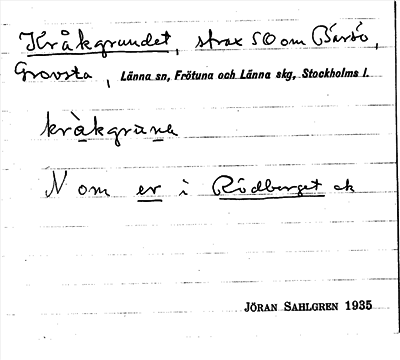 Kråkgrundet, strax SO om Barsö,
Grovsta, Länna sn, Frötuna och Länna skg, Stockholms l.
kràkgruna
N om er i Rödberget ek
JÖRAN SAHLGREN 1935